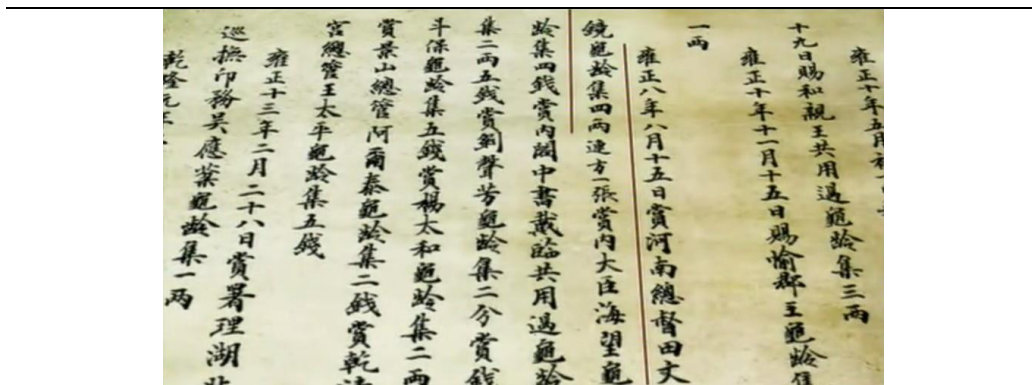 雍正十年五月初一
十九日賜和親王共用過龜齡集三兩
雍正十年十一月十五日賜愉郡王龜齡集
一兩
雍正八年八月十五日賞河南總督田文
鏡龜齡集四兩連方一張賞内大臣海望龜
龄集四錢賞内閣中書戴臨共用過龜齡
集二兩五錢賞劉聲芳龜齡集二分賞錢
斗保龜龄集五錢賞楊太和龜龄集二兩
賞景山總管阿爾泰龜龄集二錢賞乾清
宫總管王太平龜龄集五錢
雍正十三年二月二十八日賞署理湖北
巡撫印務吴應棻龜龄集一兩
乾隆元年